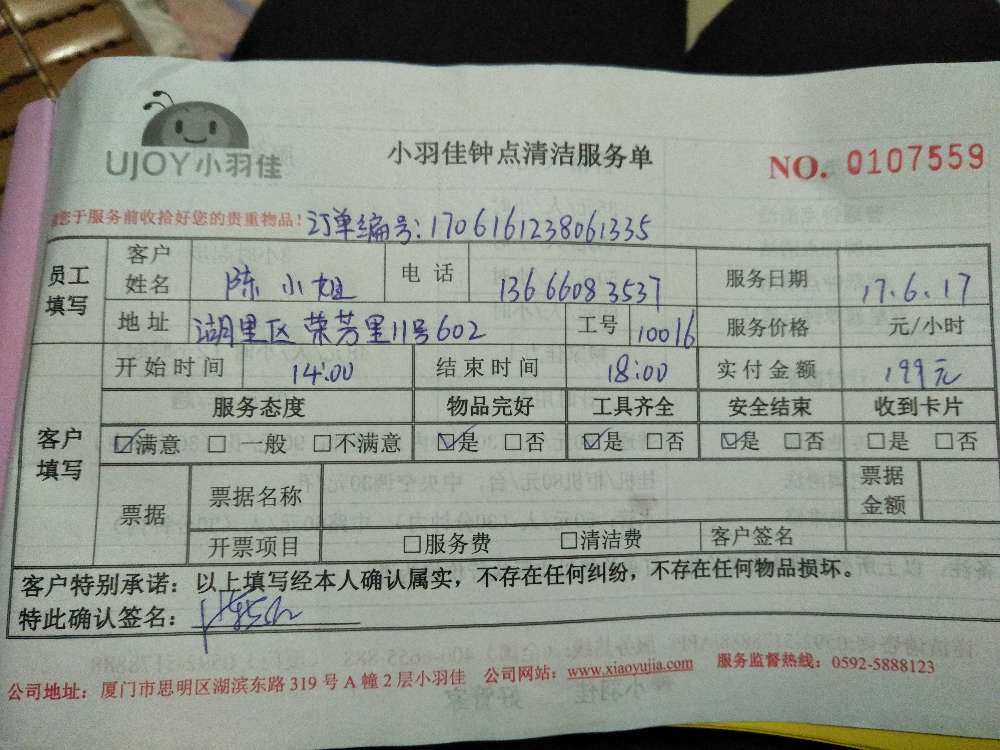 UJOY小羽佳
小羽佳钟点清洁服务单
NO. 0107559
您于服务前收拾好您的贵重物品! 订单编号:1706161238061335
员工填写 客户姓名 陈小姐 电话 13666083537 服务日期 17.6.17
地址 湖里区荣芳里11号602 工号 10016 服务价格 元/小时
客户填写 开始时间 14:00 结束时间 18:00 实付金额 199元
服务态度 物品完好 工具齐全 安全结束 收到卡片
☑满意 □一般 □不满意 ☑是 □否 ☑是 □否 ☑是 □否 □是 □否
票据 票据名称 票据金额
开票项目 □服务费 □清洁费 客户签名
客户特别承诺:以上填写经本人确认属实,不存在任何纠纷,不存在任何物品损坏。
特此确认签名:
公司地址:厦门市思明区湖滨东路319号A幢2层小羽佳 公司网站:www.xiaoyujia.com 服务监督热线:0592-5888123